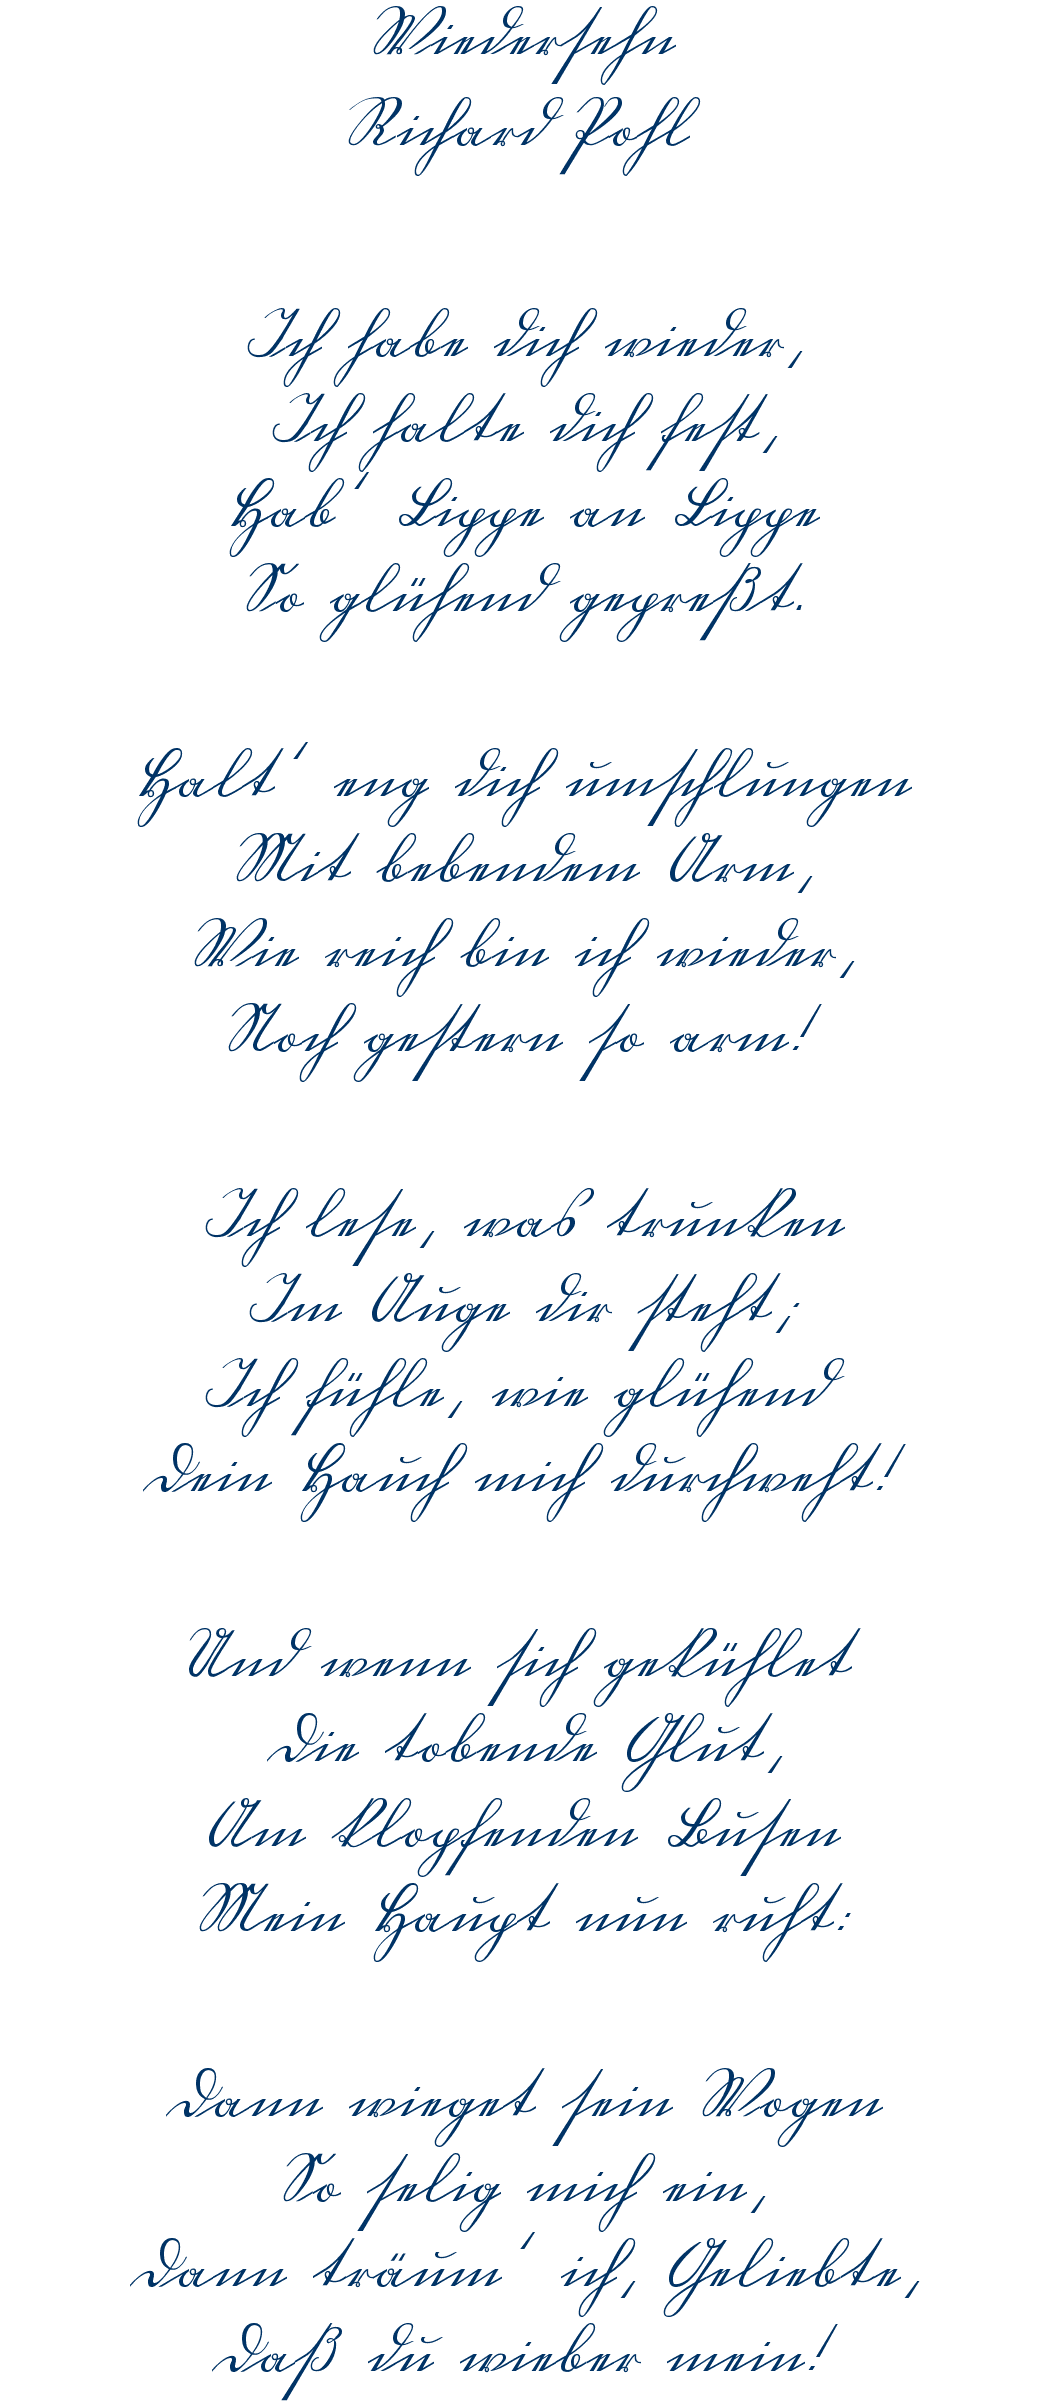 Wiedersehn
Richard Pohl
Ich habe dich wieder,
Ich halte dich fest,
Hab' Lippe an Lippe
So glühend gepreßt.
Halt' eng dich umschlungen
Mit bebendem Arm,
Wie reich bin ich wieder,
Noch gestern so arm!
Ich lese, was trunken
Im Auge dir steht;
Ich fühle, wie glühend
Dein Hauch mich durchweht!
Und wenn sich gekühlet
Die tobende Glut,
Am klopfenden Busen
Mein Haupt nun ruht:
Dann wieget sein Wogen
So selig mich ein,
Dann träum' ich, Geliebte,
Daß du wieber mein!